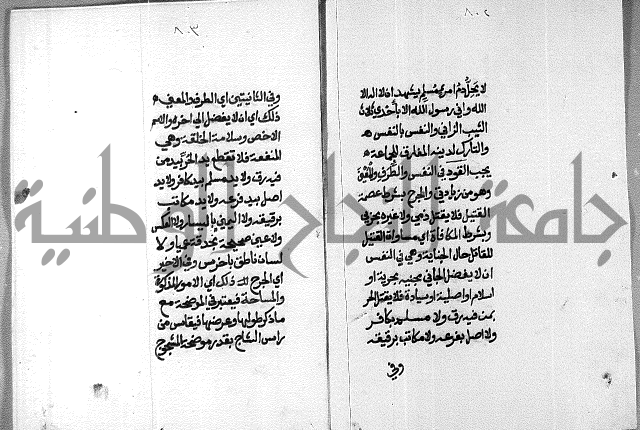 ٨٠٢
لا يحل دم امرئ مسلم يشهد ان لا اله الا
الله واني رسول الله الا باحدى ثلاث
الثيب الزاني والنفس بالنفس
والتارك لدينه المفارق للجماعة
يجب القود في النفس والطرف والمعنى
وهو من زيادتي والجرح بشرط عصمة
القتيل فلا يقتل ذمي ولا غيره بحربي
وبشرط المكافأة اي مساواة القتيل
للقاتل حال الجناية وهي في النفس
ان لا يفضل الجاني مجنيه بحرية او
اسلام او اصلية او سيادة فلا يقتل حر
بمن فيه رق ولا مسلم بكافر
ولا اصل بفرعه ولا مكاتب برقيقه
وفي
٨٠٣
وفي الثانيتين اي الطرف والمعنى
ذلك اي ان لا يفضل الى اخره والاسم
الاخص وسلامة الخلقة وهي
المنفعة فلا تقطع يد الحر بيد من
فيه رق ولا يد مسلم بيد كافر ولا يد
اصل بيد فرعه ولا يد مكاتب
برقيقه ولا اليمنى باليسار ولا العكس
ولا عين صحيحة بحدقة عمياء ولا
لسان ناطق باخرس وفي الاخير
اي الجرح ذلك اي الامور المذكورة
والمساحة فيعتبر في الموضحة مع
ما ذكر طولها وعرضها فيقاس من
راس الشاج بقدر موضحة المشجوج
جامعة النجاح الوطنية